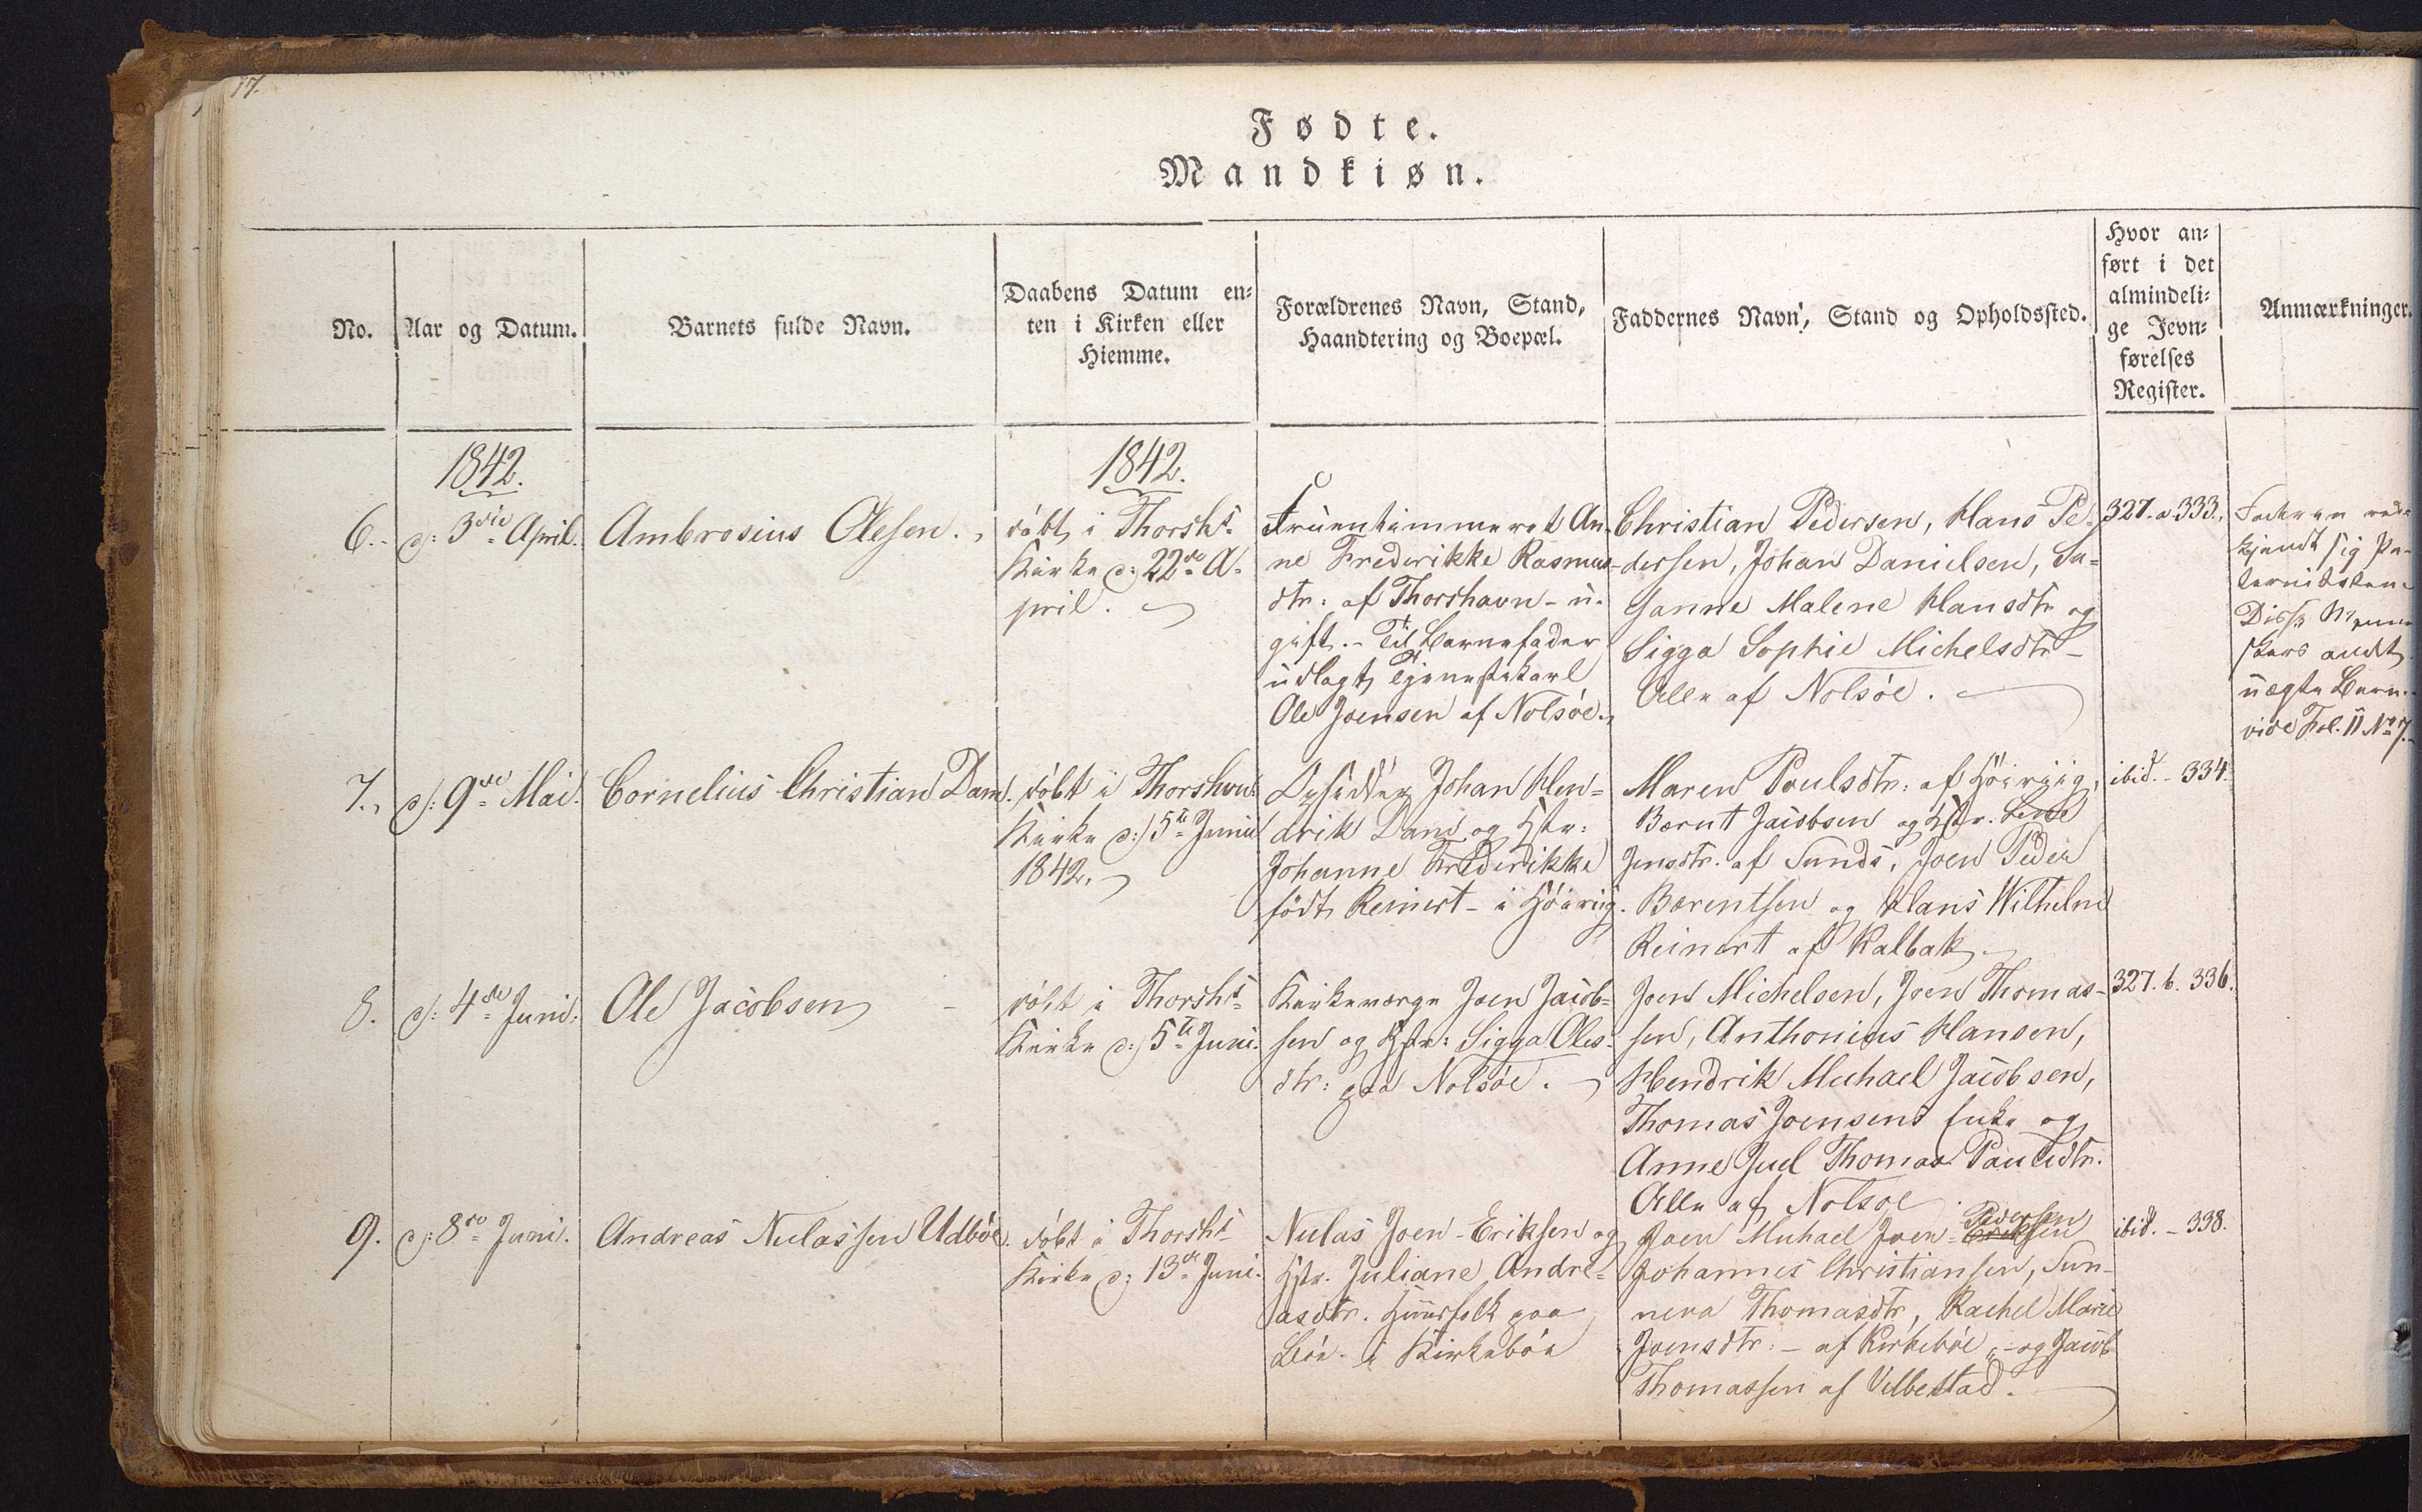 17.
Fødte.
Mandkiøn.
No.
Aar og Datum.
Barnets fulde Navn.
Daabens Datum en-
ten i Kirken eller
Hiemme.
Forældrenes Navn, Stand,
Haandtering og Boepæl.
Faddernes Navn, Stand og Opholdssted.
Hvor an-
ført i det
almindeli-
ge Jevn-
førelses
Register.
Anmærkninger.
1842.
1842.
6.
d: 3die April.
Ambrosius Olesen.
döbt i Thorshs
Kirke d: 22de A-
pril.
Fruentimmeret An-
ne Frederikke Rasmus-
dtr: af Thorshavn - u-
gift. - Til Barnefader
udlagt Tjenestekarl
Ole Joensen af Nolsöe.
Christian Pedersen, Hans Pe-
dersen, Johan Danielsen, Su-
sanne Malene Hansdtr og
Sigga Sophie Michelsdtr -
Alle af Nolsöe.
327. a 333.
Faderen ved-
kjendt sig Pa-
terniteten.
Disse Menne-
skers andet
uægte Barn.
vide Fol. 11 No 7.
7.
d: 9de Mai.
Cornelius Christian Dam.
döbt i Thorshvns
Kirke d: 5te Junii
1842.
Johan Hen-
drik Dam og Hstr:
Johanne Frederikke
födt Reinert - i Höiviig.
Maren Poulsdtr: af Höiviig,
Bærnt Jacobsen og Hstr. Lene
Jensdtr. af Sunds, Joen Peder
Bærentsen og Hans Wilhelm
Reinert af Kalbak.
ibid. - 334.
8.
d: 4de Juni.
Ole Jacobsen
döbt i Thorshs
Kirke d: 5te Juni.
Kirkeværge Joen Jacob-
sen og Hstr: Sigga Oles-
dtr: paa Nolsöe.
Joen Michelsen, Joen Thomas-
sen, Anthonius Hansen,
Hendrik Michael Jacobsen,
Thomas Joensens Enke og
Anne Juel Thomas Paulsdtr.
Alle af Nolsöe
327. b. 336.
9.
d: 8de Juni.
Andreas Niclassen Udböe.
döbt i Thorshs
Kirke d: 13de Juni.
Niclas Joen-Eriksen og
Hstr. Juliane Andre-
asdtr. Huusfolk paa
Böe i Kirkeböe
Pedersen
Joen Michael Joen-Eriksen
Johannes Christiansen, Sun-
neva Thomasdtr, Rachel Marie
Joensdtr: - af Kirkeböe - og Jacob
Thomassen af Velbestad.
ibid. - 338.